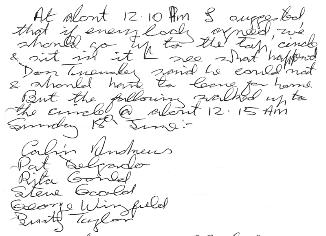 At about 12.10 Am I suggested
that if everybody agreed, we
should go up to the top circle
& sit in it & see what happened
Don Tuersley said he could not
& should have to leave for home.
But the following walked up to
the circle @ about 12.15 AM
Sunday 18th June:-
Colin Andrews
Pat Delgado
Rita Gould
Steve Gould
George Wingfield
Busty Taylor